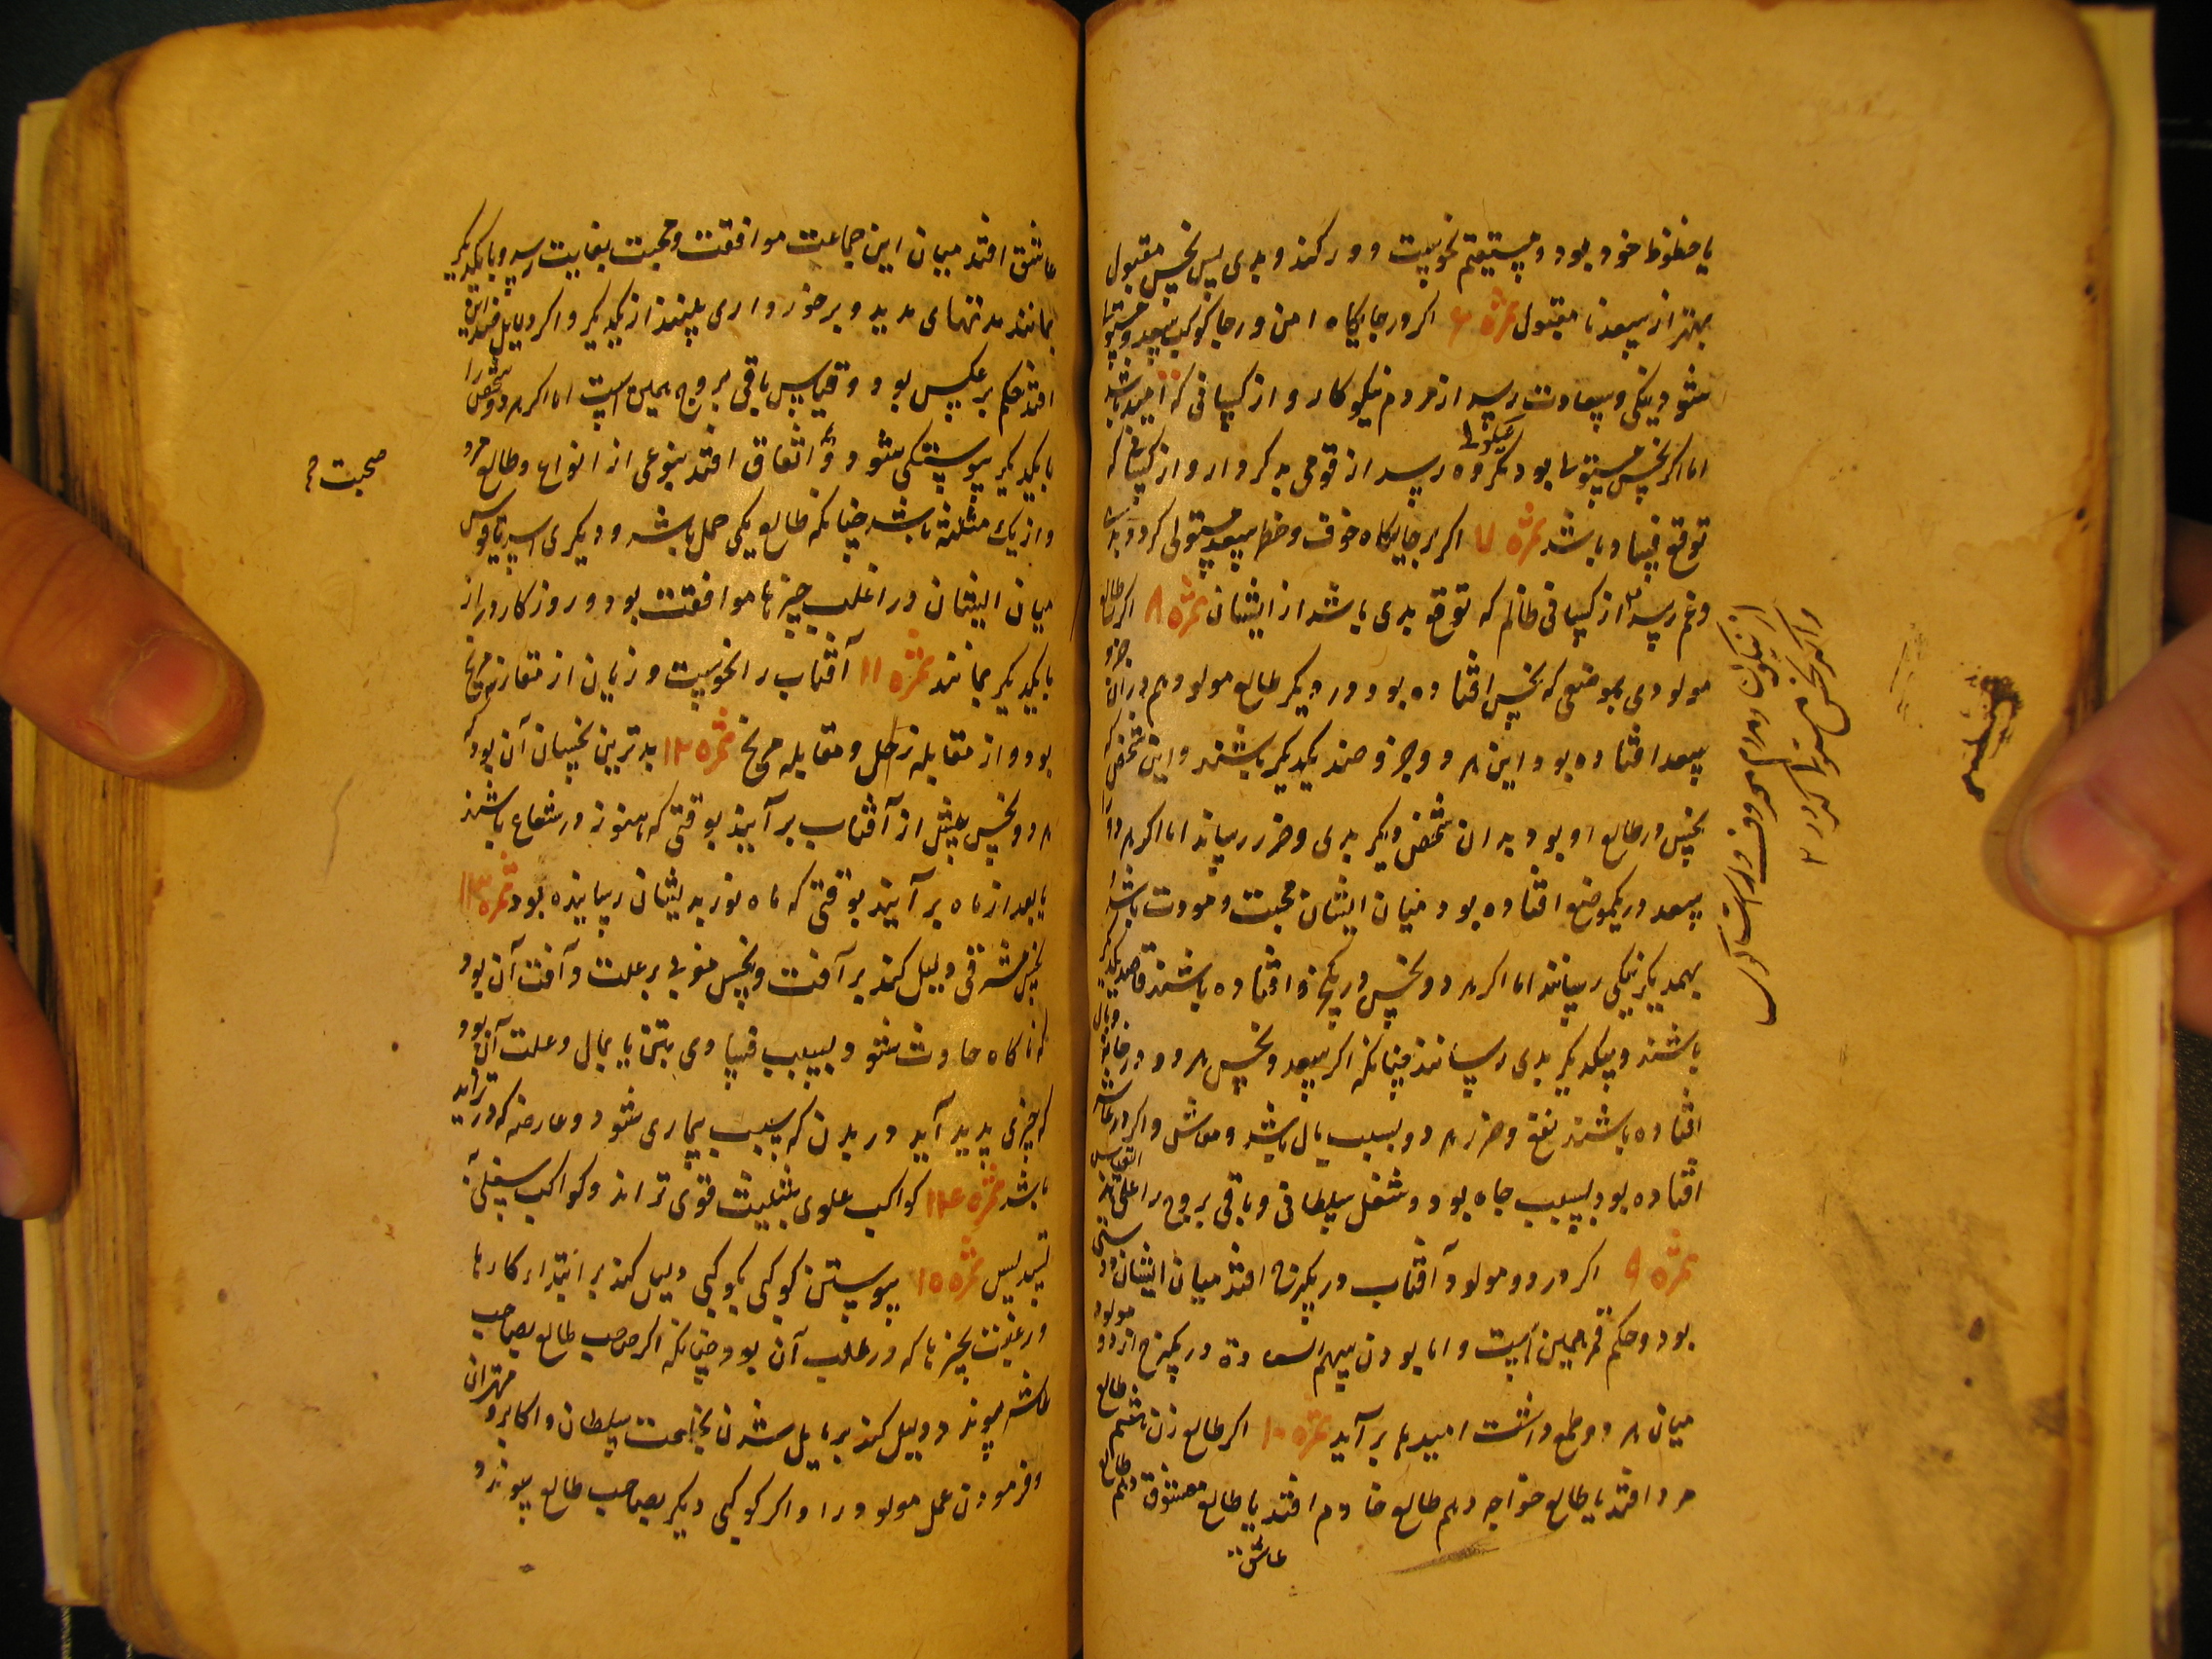 یا حظوظ خود بود و مستقیم نحوست دور کند و بدی پس نحس مقبول
بهتر از سعد نا مقبول ثمره ۶ اکر در جایکاه امن و رجا کوکب سعد
شود نیکی و سعادت رسد از مردم نیکوکار و از کسانی که امید باشد
اما اکر نحس مستولی بود مکروه رسد از قومی بدکردار و از کسانی که
توقع فساد باشد ثمره ۷ اکر بر جایکاه خوف و خطر سعد مستولی کردد
و غم رسد از کسانی ظالم که توقع بدی باشد از ایشان ثمره ۸ اکر طالع
مولودی بموضعی که نحس افتاده بود و در دیکر طالع مولود هم در آن جزو
سعد افتاده بود این هر دو جزو ضد یکدیکر باشند و این شخص که
نحس در طالع او بود بدان شخص دیکر بدی و ضرر رساند اما اکر هر دو را
سعد در یکموضع افتاده بود میان ایشان محبت و مودت باشد
بهمدیکر نیکی رسانند اما اکر هر دو نحس در یکجزو افتاده باشند قاصد یکدیکر
باشند و بیکدیکر بدی رسانند چنانکه اکر سعد و نحس هر دو در خانه مال
افتاده باشند نفع و ضرر هر دو بسبب مال باشد و معاش و اکر در عاشر
افتاده بود بسبب جاه بود و شغل سلطانی و باقی بروج را علی هذا القیاس
ثمره ۹ اکر در دو مولود آفتاب در یکبرج افتد میان ایشان دوستی
بود و حکم قمر همین است و اما بودن سهم السعادة در یکبرج از دو مولود
میان هر دو طمع داشت امیدها بر آید ثمره ۱۰ اکر طالع زن هفتم طالع
مرد افتد یا طالع خواجه دهم طالع خادم افتد یا طالع معشوق دهم طالع
عاشق
و اکر نحس مستولی کردد
عاشق افتد میان این جماعت موافقت و محبت بغایت رسد و با یکدیکر
بمانند مدتهای مدید و برخورداری بینند از یکدیکر و اکر دلایل ضد این
افتد حکم بر عکس بود و قیاس باقی بروج همین است اما اکر هر دو شخص را
با یکدیکر پیوستکی شود و اتفاق افتد بنوعی از انواع و طالع هر دو
و از یک مثلثه باشد چنانکه طالع یکی حمل باشد و دیکری اسد یا قوس
میان ایشان در اغلب چیزها موافقت بود و روزکار دراز
با یکدیکر بمانند ثمره ۱۱ آفتاب را نحوست و زیان از مقارنه مریخ
بود و از مقابله زحل و مقابله مریخ ثمره ۱۲ بدترین نحسان آن بود که
هر دو نحس پیش از آفتاب بر آیند بوقتی که هنوز در شعاع باشند
یا بعد از ماه بر آیند بوقتی که ماه نور بدیشان رسانیده بود ثمره ۱۳
نحس مشرقی دلیل کند بر آفت و نحس مغربی بر علت و آفت آن بود
که ناکاه حادث شود بسبب فسادی بتن یا بمال و علت آن بود
که چیزی پدید آید در بدن که سبب بیماری شود و عارضه که در تزاید
باشد ثمره ۱۴ کواکب علوی بتثلیث قوی تراند و کواکب سفلی به
تسدیس ثمره ۱۵ پیوستن کوکبی بکوکبی دلیل کند بر ابتداء کارها
و رغبت بچیزها که در طلب آن بود چنانکه اکر صاحب طالع بصاحب
عاشر پیوندد دلیل کند بر مایل شدن بخدمت سلطان و اکابر و مهتران
و فرمودن عمل مولود را و اکر کوکبی دیکر بصاحب طالع پیوندد
صحبت